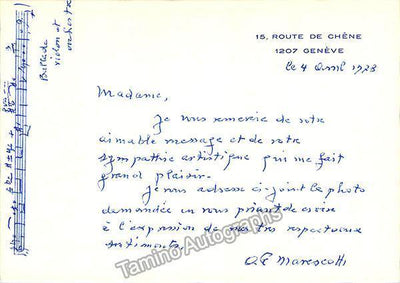 15, ROUTE DE CHÊNE
1207 GENÈVE
le 4 avril 1973
Madame,
Je vous remercie de votre
aimable message et de votre
sympathie artistique qui me fait
grand plaisir.
Je vous adresse ci-joint la photo
demandée en vous priant de croire
à l'expression de mes très respectueux
sentiments.
A F Marescotti
Ballade
violon et
orchestre
Tamino Autographs